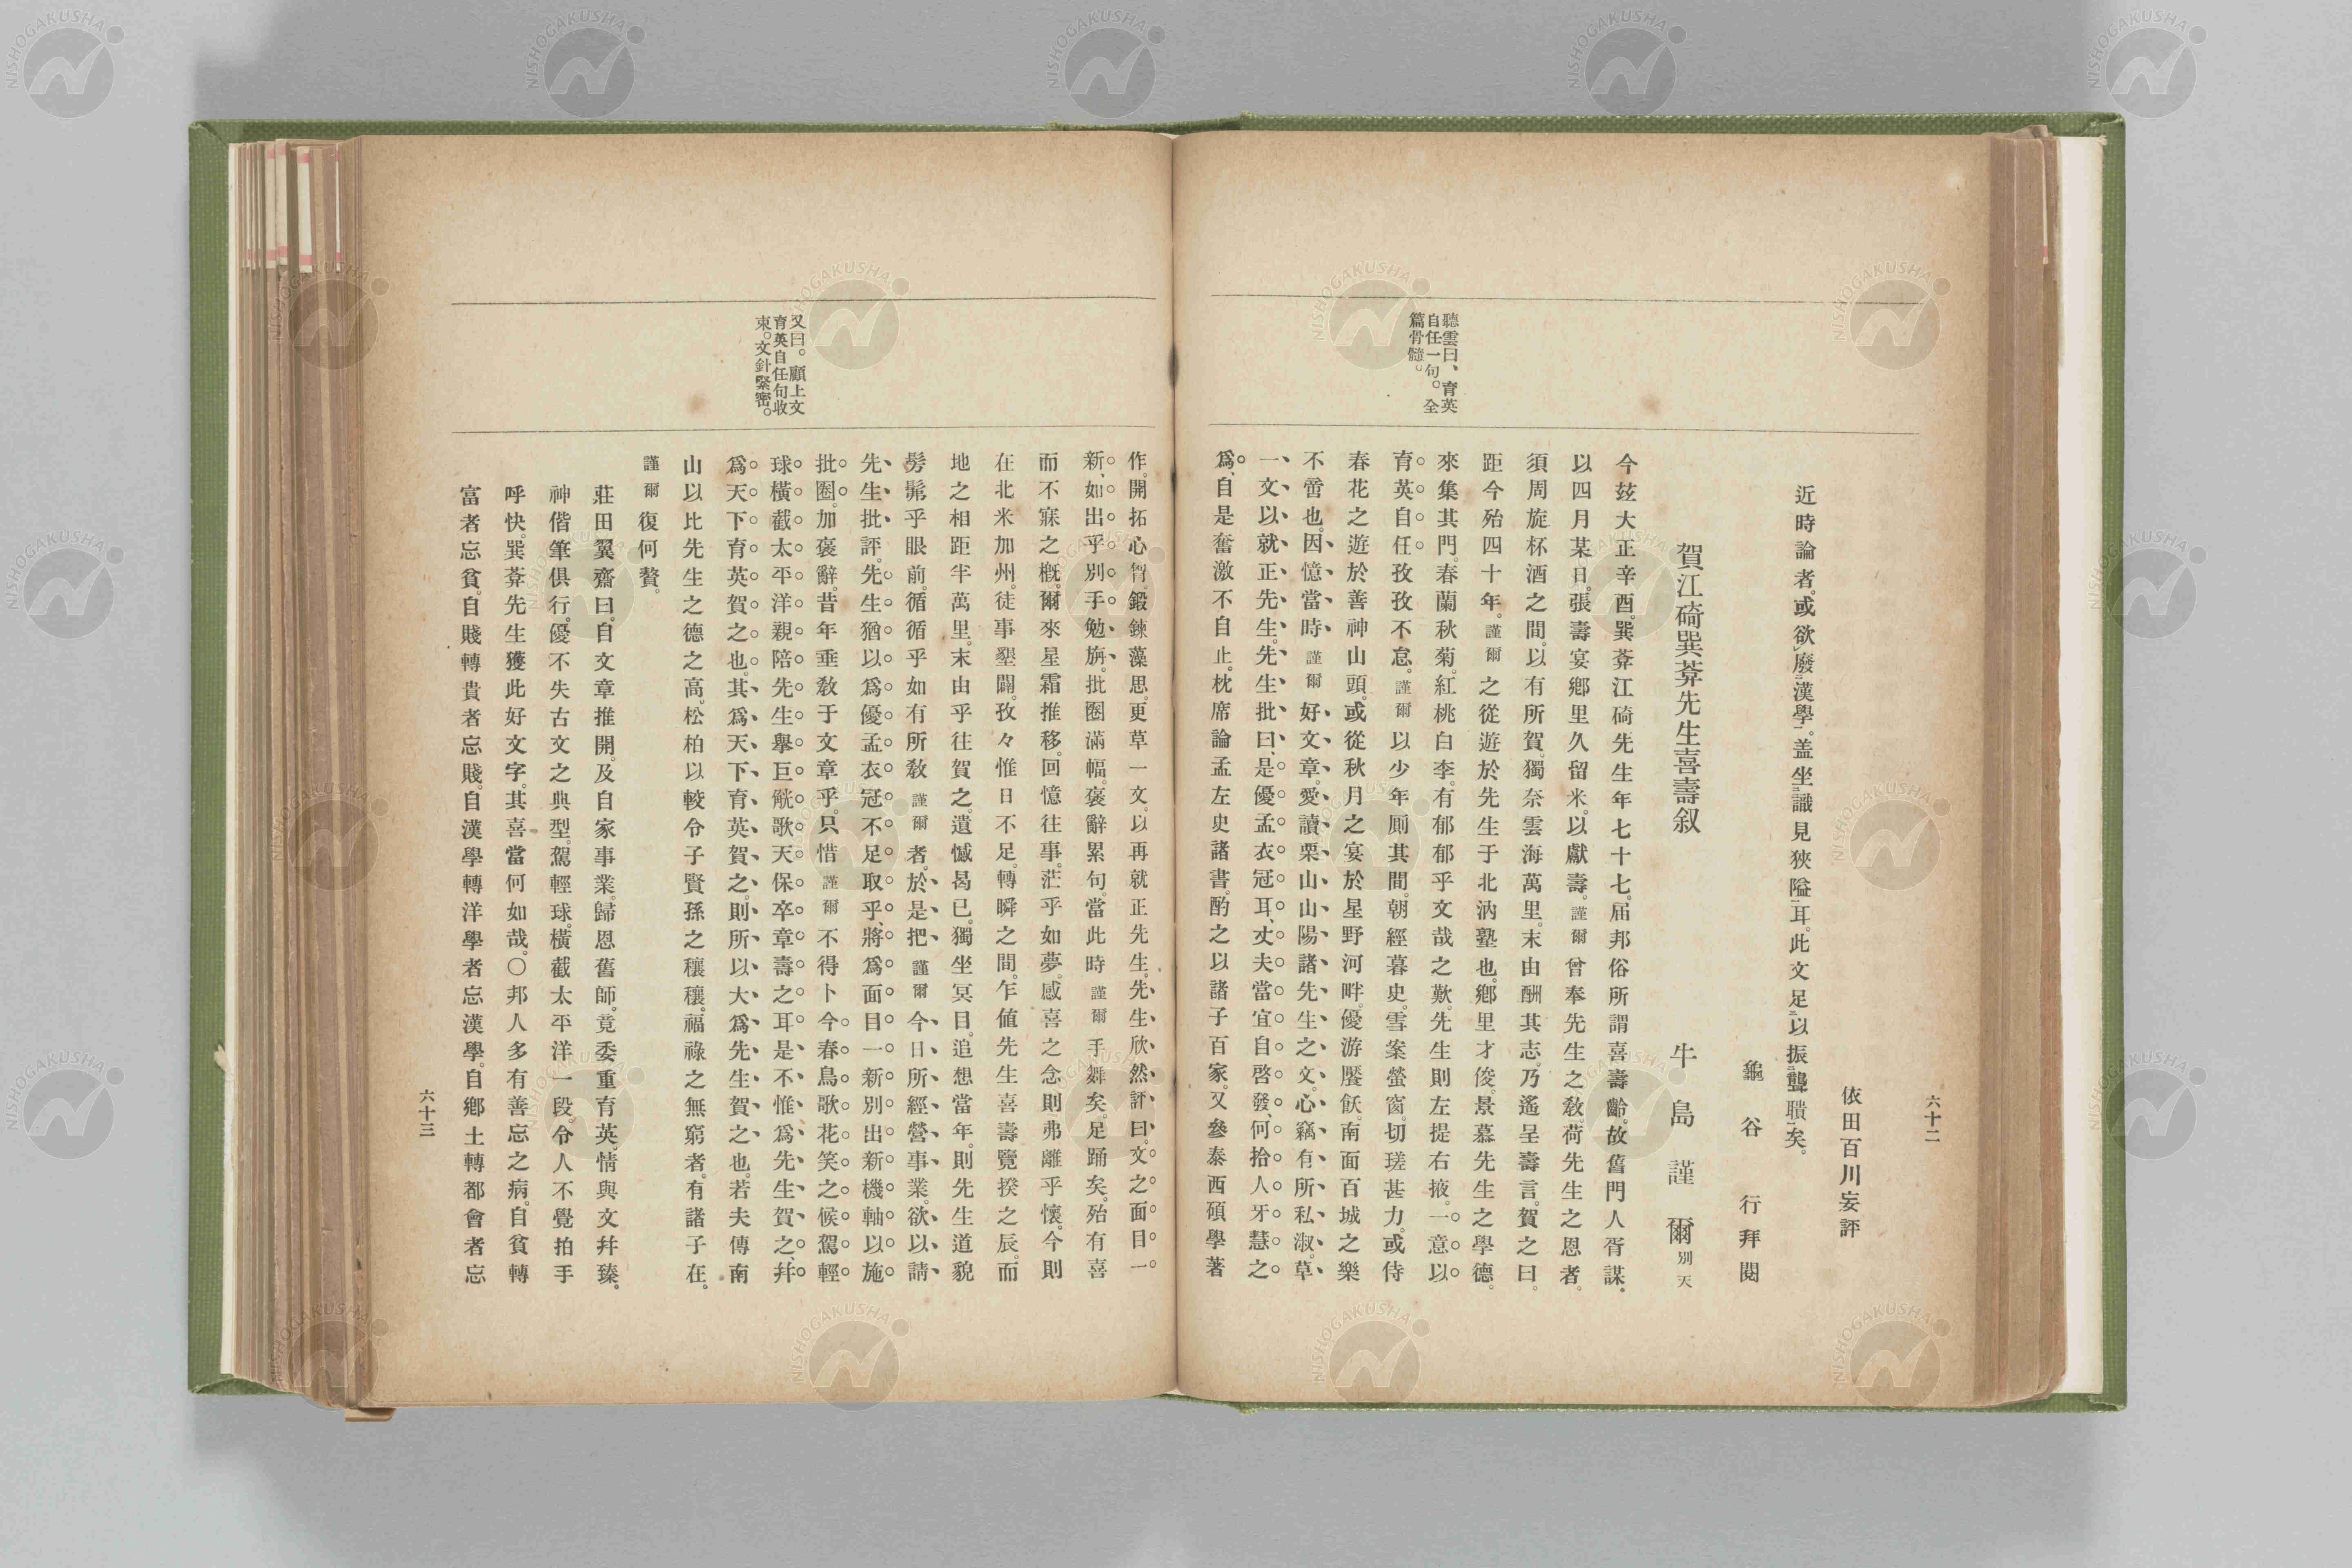 六十二
依田百川妄評
近時論者。或欲廢漢學。盖坐識見狹隘耳。此文足以振聾聵矣。
龜谷行拜閱
賀江碕巽菴先生喜壽叙
牛島謹爾別天
今玆大正辛酉。巽菴江碕先生年七十七。届邦俗所謂喜壽齡。故舊門人胥謀。
以四月某日。張壽宴鄕里久留米。以獻壽。謹爾曾奉先生之敎。荷先生之恩者。
須周旋杯酒之間。以有所賀。獨奈雲海萬里。末由酬其志。乃遙呈壽言。賀之曰。
距今殆四十年。謹爾之從遊於先生于北汭塾也。鄕里才俊。景慕先生之學德。
來集其門。春蘭秋菊。紅桃白李。有郁郁乎文哉之歎。先生則左提右掖。一意以
育英自任。孜孜不怠。謹爾以少年厠其間。朝經暮史。雪案螢窗。切瑳甚力。或侍
春花之遊於善神山頭。或從秋月之宴於星野河畔。優游饜飫。南面百城之樂
不啻也。因憶當時謹爾好文章。愛讀栗山山陽諸先生之文。心竊有所私淑。草
一文以就正先生。先生批曰、是優孟衣冠耳、丈夫當宜自啓發、何拾人牙慧之
爲、自是奮激不自止。枕席論孟左史諸書。酌之以諸子百家。又參泰西碩學著
聽雲曰、育英
自任一句。全
篇骨髓。
作。開拓心胷。鍛鍊藻思。更草一文。以再就正先生。先生欣然評曰。文之面目一
新、如出乎別手。勉旃。批圈滿幅。褒辭累句。當此時謹爾手舞矣。足踊矣。殆有喜
而不寐之槪。爾來星霜推移。回憶往事。茫乎如夢。感喜之念則弗離乎懷。今則
在北米加州。徒事墾闢。孜々惟日不足。轉瞬之間。乍値先生喜壽覽揆之辰。而
地之相距半萬里。末由乎往賀之。遺憾曷已。獨坐冥目。追想當年。則先生道貌
髣髴乎眼前。循循乎如有所敎謹爾者。於是把謹爾今日所經營事業。欲以請
先生批評。先生猶以爲優孟衣冠不足取乎。將爲面目一新別出新機軸以施
批圈。加褒辭。昔年垂敎于文章乎。只惜謹爾不得卜今春鳥歌花笑之候。駕輕
球。橫截太平洋。親陪先生擧巨觥。歌天保卒章壽之耳。是不惟爲先生賀之。幷
爲天下育英賀之也。其爲天下育英賀之。則所以大爲先生賀之也。若夫傳南
山以比先生之德之高。松柏以較令子賢孫之穰穰。福祿之無窮者。有諸子在。
謹爾復何贅。
莊田翼齋曰。自文章推開。及自家事業。歸恩舊師。竟委重育英。情與文幷臻。
神偕筆俱行。優不失古文之典型。駕輕球。橫截太平洋一段。令人不覺拍手
呼快。巽菴先生獲此好文字。其喜當何如哉。〇邦人多有善忘之病。自貧轉
富者忘貧。自賤轉貴者忘賤。自漢學轉洋學者忘漢學。自鄕土轉都會者忘
又曰。顧上文
育英自任句收
束。文針緊密。
六十三